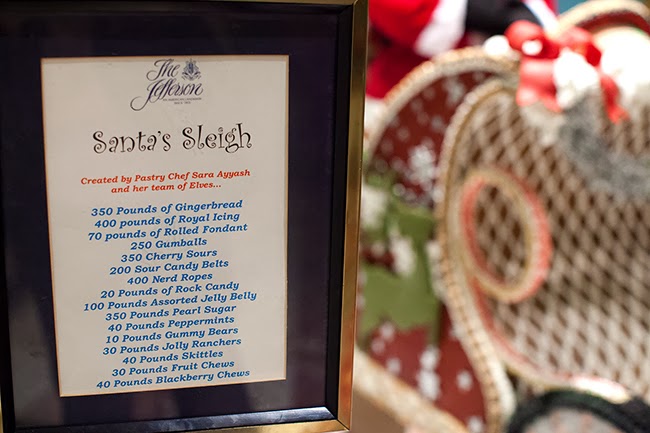 The
Jefferson
Santa's Sleigh
Created by Pastry Chef Sara Ayyash
and her team of Elves...
350 Pounds of Gingerbread
400 pounds of Royal Icing
70 pounds of Rolled Fondant
250 Gumballs
350 Cherry Sours
200 Sour Candy Belts
400 Nerd Ropes
20 Pounds of Rock Candy
100 Pounds Assorted Jelly Belly
350 Pounds Pearl Sugar
40 Pounds Peppermints
10 Pounds Gummy Bears
30 Pounds Jolly Ranchers
40 Pounds Skittles
30 Pounds Fruit Chews
40 Pounds Blackberry Chews